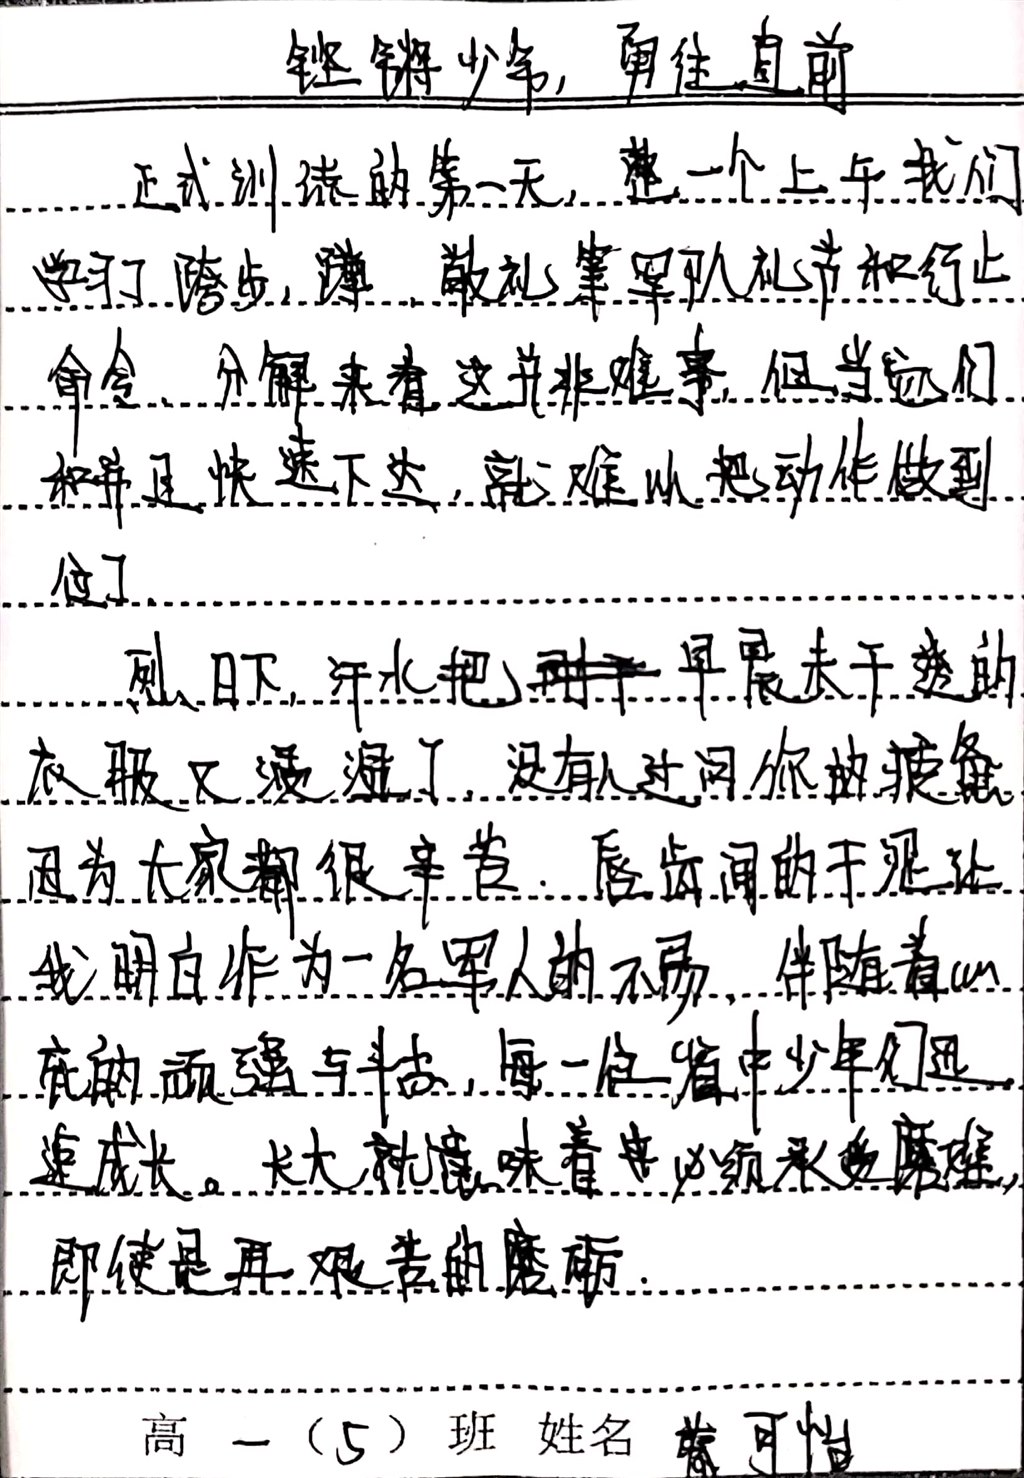 铿锵少年，勇往直前
正式训练的第一天，整一个上午我们
学习了跨步，蹲，敬礼等军队礼节和行止
命令．分解来看这并非难事，但当它们
和并且快速下达，就难以把动作做到
位了．
烈日下，汗水把早晨未干透的
衣服又浸湿了．没有人过问你的疲惫
因为大家都很辛苦．唇齿间的干涩让
我明白作为一名军人的不易．伴随着心
底的顽强与斗志，每一位省中少年们迅
速成长。长大就意味着必须承受磨难，
即使是再艰苦的磨砺．
高一（5）班 姓名 蔡可怡